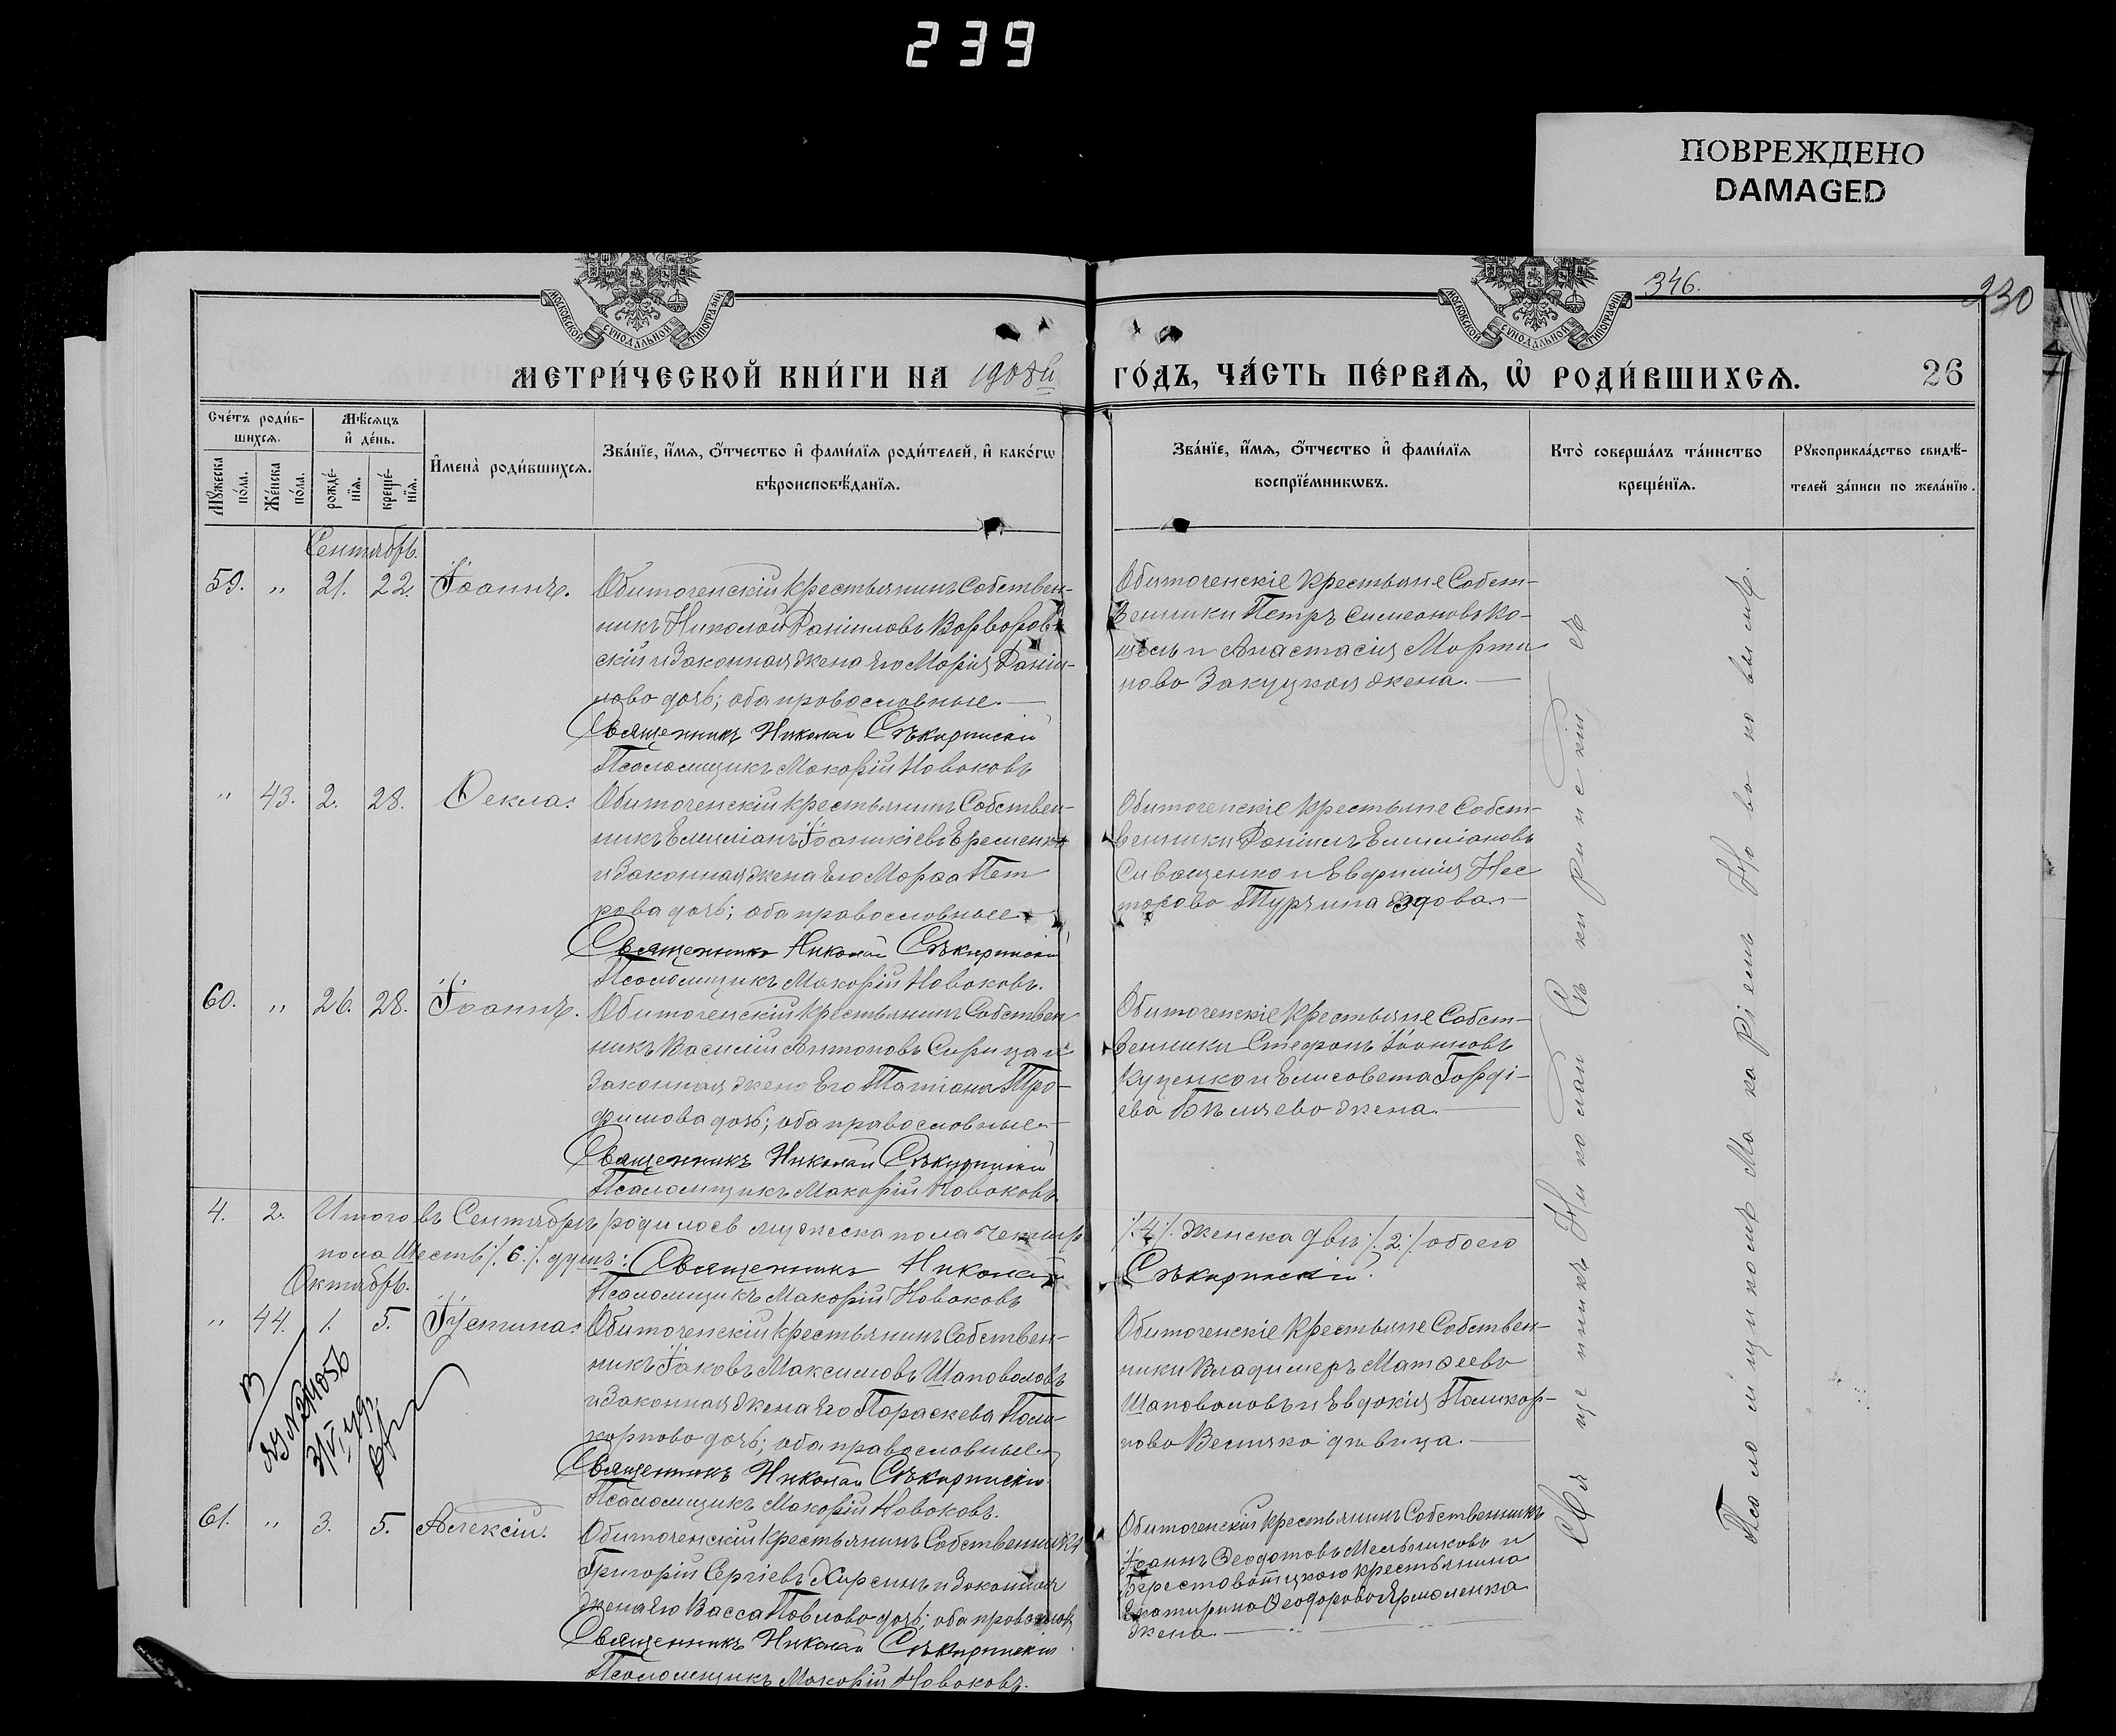 239
ПОВРЕЖДЕНО
DAMAGED
МОСКОВСКОЙ СѴНОДАЛЬНОЙ ТИПОГРАФІИ
МОСКОВСКОЙ СѴНОДАЛЬНОЙ ТИПОГРАФІИ
346.
230
МЕТРИ́ЧЕСКОЙ КНИ́ГИ НА 1908й
ГО́ДЪ, ЧА́СТЬ ПЕ́РВАѦ, Ѡ҆ РОДИ́ВШИХСѦ.
26
Сче́тъ роди́в-
шихсѧ.
Мѣ́сѧцъ
и҆ де́нь.
Мꙋ́жеска
по́ла.
Же́нска
по́ла.
рожде́-
нїѧ.
креще́-
нїѧ.
И҆мена̀ роди́вшихсѧ.
Зва́нїе, и҆́мѧ, ѻ҆́тчество и҆ фами́лїѧ роди́телей, и҆ како́гѡ
вѣроисповѣ́данїѧ.
Зва́нїе, и҆́мѧ, ѻ҆́тчество и҆ фами́лїѧ
воспрїе́мникѡвъ.
Кто̀ соверша́лъ та́инство
креще́нїѧ.
Рꙋкоприкла́дство свидѣ́-
телей за́писи по жела́нїю.
Сентябрь.
59. " 21. 22. Іоаннъ.
Обиточенскій крестьянинъ Собствен-
никъ Николай Даніиловъ Варваров-
скій и законная жена его Марія Даніи-
лова дочь; оба православные.
Священникъ Николай Сѣкиринскій
Псаломщикъ Макарій Новаковъ
Обиточенскіе крестьяне Собст-
венники Петръ Симеоновъ Ко-
шель и Анастасія Марти
нова Закуцкая жена.
" 43. 2. 28. Ѳекла.
Обиточенскій крестьянинъ Собствен-
никъ Емиліанъ Іоаникіевъ Еременко
и законная жена его Марѳа Пет
рова дочь; оба православные
Священникъ Николай Сѣкиринскій
Псаломщикъ Макарій Новаковъ.
Обиточенскіе крестьяне Собст-
венники Даніилъ Емиліановъ
Сиващенко и Евфимія Нес
торова Турчина вдова
60. " 26. 28. Іоаннъ.
Обиточенскій крестьянинъ Собствен
никъ Василій Антоновъ Сирица и
законная жена его Татіана Тро-
фимова дочь; оба православные
Священникъ Николай Сѣкиринскій
Псаломщикъ Макарій Новаковъ.
Обиточенскіе крестьяне Собст-
венники Стефанъ Іоанновъ
Куценко и Елисавета Горді-
ева Бѣляева жена.
4. 2. Итого въ Сентябрѣ родилось мужеска пола четыр
/.4./. женска двѣ /.2./ обоего
пола шесть /.6./. душъ: Священникъ Николай
Сѣкиринскій.
Псаломщикъ Макарій Новаковъ
Октябрь.
" 44. 1. 5. Іустина.
Обиточенскій крестьянинъ Собствен-
никъ Іаковъ Максимовъ Шаповаловъ
и законная жена его Параскева Поли-
карпова дочь; оба православные
Священникъ Николай Сѣкиринскій
Псаломщикъ Макарій Новаковъ.
Обиточенскіе крестьяне Собствен-
ники Владимеръ Матѳеевъ
Шаповаловъ и Евдокія Поликар-
пова Величко дѣвица.
61. " 3. 5. Алексій.
Обиточенскій крестьянинъ Собственникъ
Григорій Сергіевъ Хирсинъ и законная
жена его Васса Павлова дочь; оба православ
Священникъ Николай Сѣкиринскій
Псаломщикъ Макарій Новаковъ.
Обиточенскій крестьянинъ Собственникъ
Іоаннъ Ѳеодотовъ Мельниковъ и
Берестоватцкого крестьянина
Екатирина Ѳеодорова Ярмоленка
жена.
Священникъ Николай Сѣкиринскій съ
Псаломщикомъ Макаріемъ Новаковымъ.